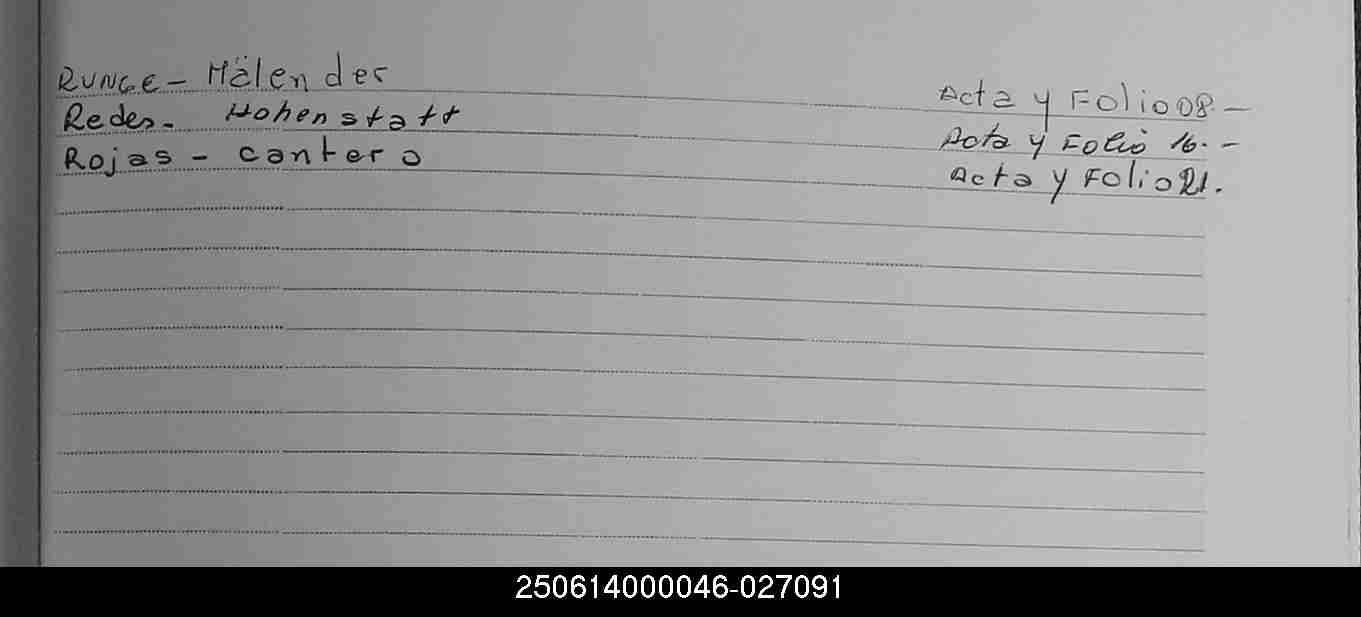 RUNGE - Mälender Acta y Folio 08. -
Redes. Hohenstatt Acta y Folio 16. -
Rojas - cantero Acta y Folio 21.
250614000046-027091